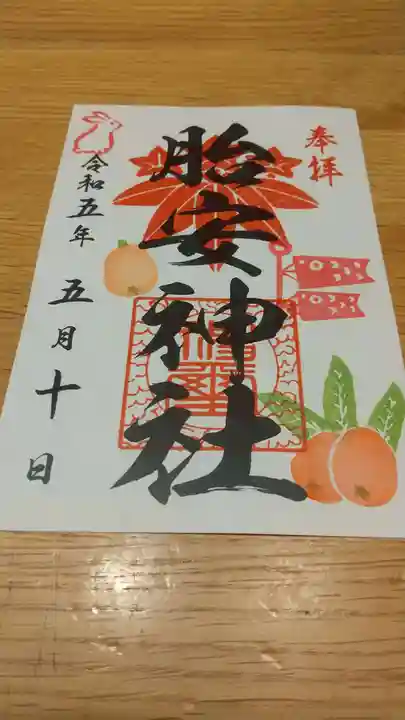 奉拝
胎安神社
令和五年 五月十日